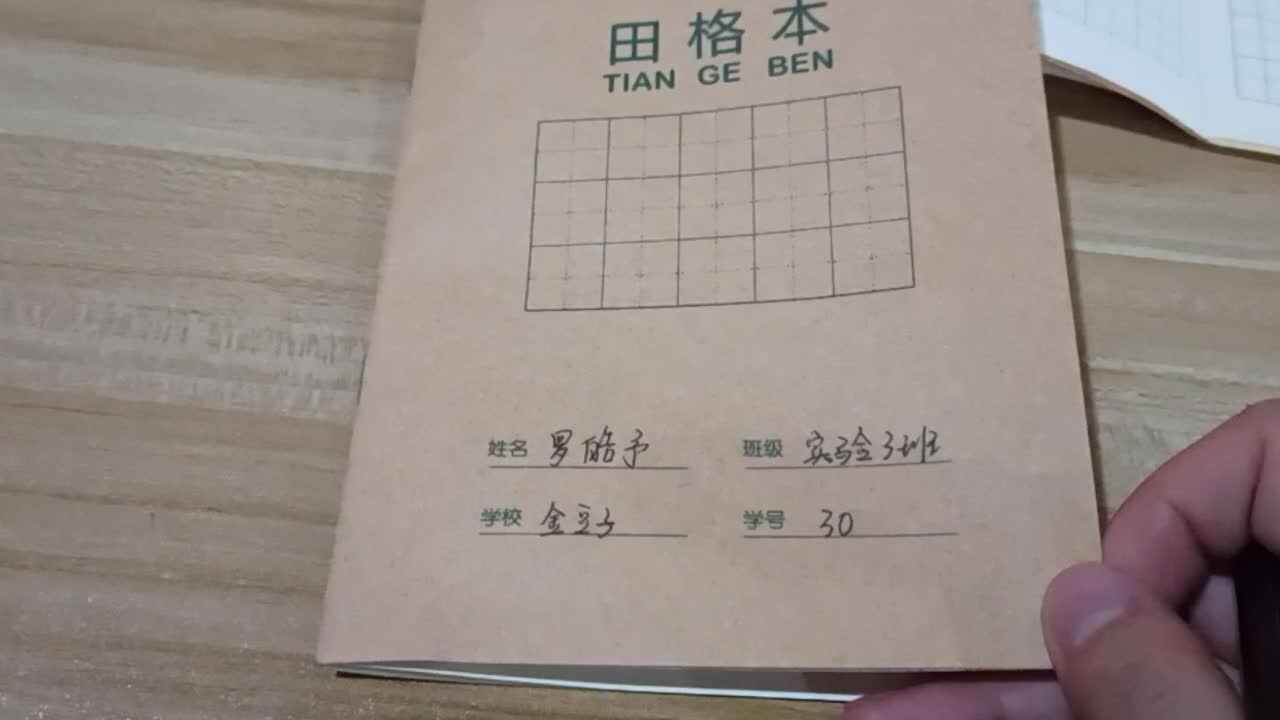 田格本
TIAN GE BEN
姓名 罗皓予 班级 实验3班
学校 金豆子 学号 30